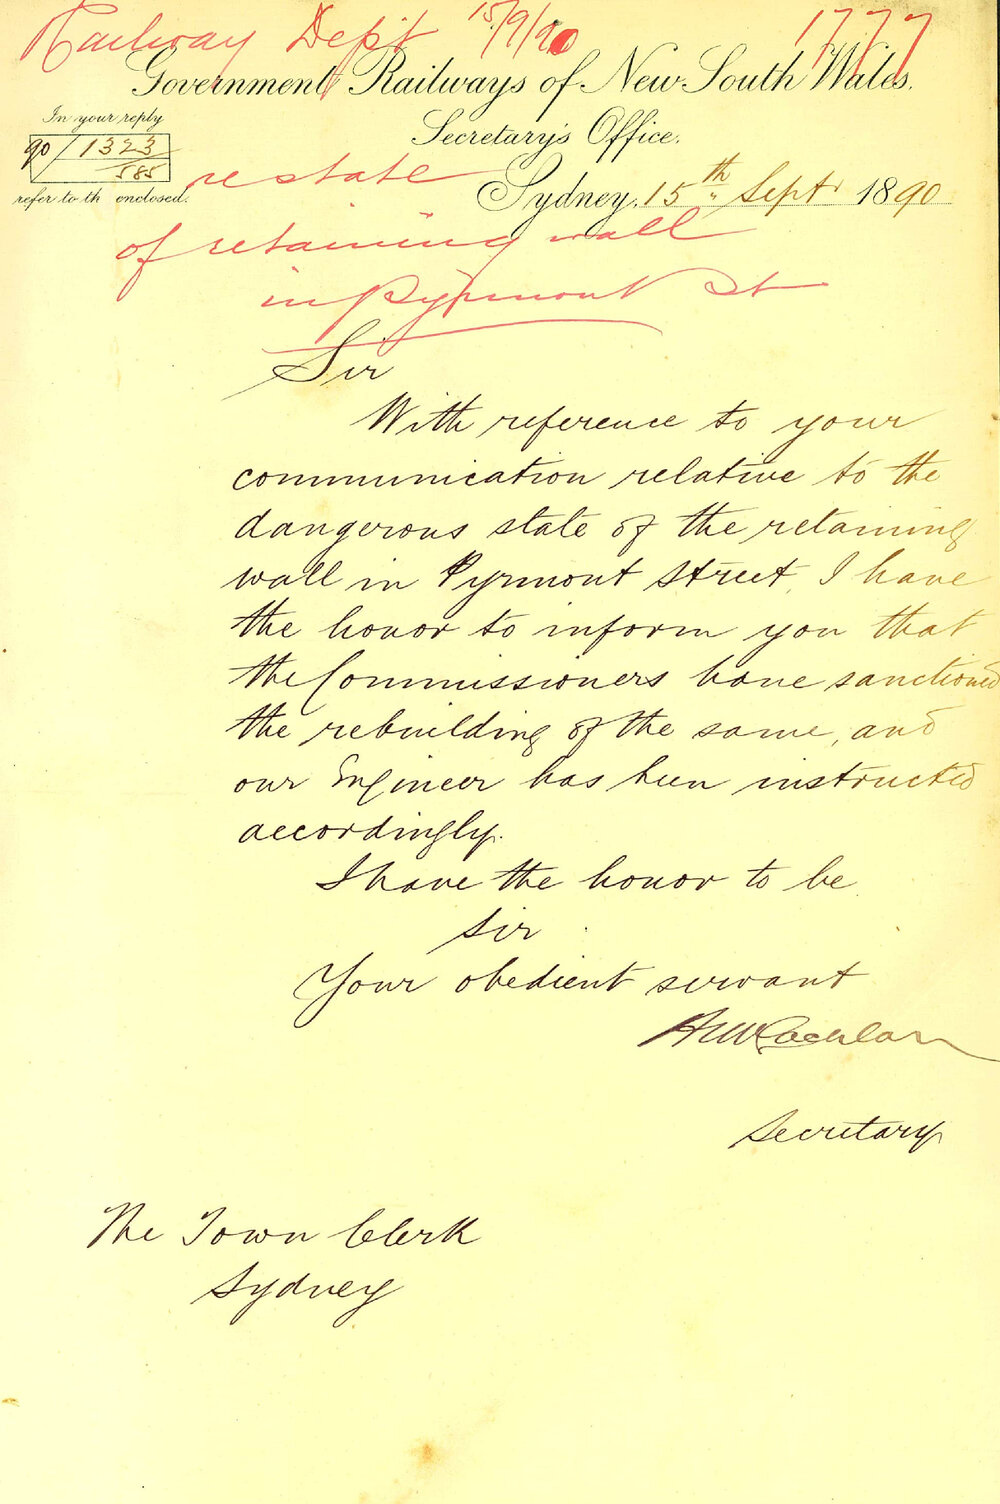 Railway Dept 15/9/90 1777
Government Railways of New South Wales.
Secretary's Office.
In your reply
90/1323
585
refer to th enclosed.
Sydney, 15th Sept 1890
re state
of retaining wall
in Pyrmont St
Sir
With reference to your
communication relative to the
dangerous state of the retaining
wall in Pyrmont Street, I have
the honor to inform you that
the Commissioners have sanctioned
the rebuilding of the same, and
our Engineer has been instructed
accordingly.
I have the honor to be
Sir
Your obedient servant
H McLachlan
Secretary
The Town Clerk
Sydney